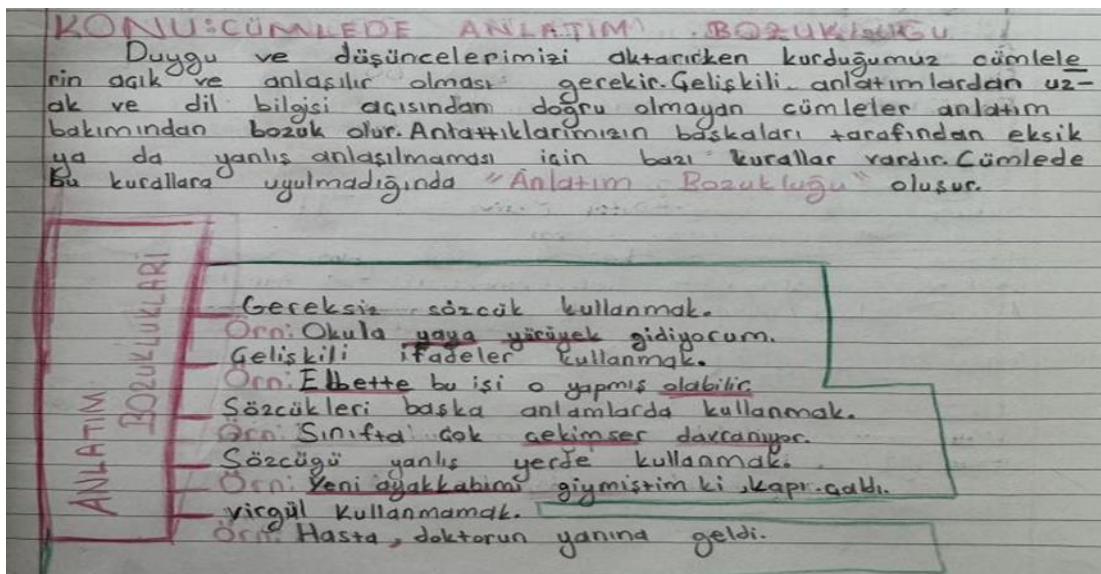 KONU:CÜMLEDE ANLATIM BOZUKLUĞU
Duygu ve düşüncelerimizi aktarırken kurduğumuz cümlele
rin açık ve anlaşılır olması gerekir. Gelişkili anlatımlardan uz-
ak ve dil bilgisi açısından doğru olmayan cümleler anlatım
bakımından bozuk olur. Anlattıklarımızın başkaları tarafından eksik
ya da yanlış anlaşılmaması için bazı kurallar vardır. Cümlede
Bu kurallara uyulmadığında "Anlatım Bozukluğu" oluşur.
ANLATIM BOZUKLUKLARI
Gereksiz sözcük kullanmak.
Örn: Okula yaya yürüyek gidiyorum.
Gelişkili ifadeler kullanmak.
Örn: Elbette bu işi o yapmış olabilir
Sözcükleri başka anlamlarda kullanmak.
Örn: Sınıfta çok çekimser davranıyor.
Sözcüğü yanlış yerde kullanmak.
Örn: Yeni ayakkabımı giymiştim ki, kapı çaldı.
virgül kullanmamak.
Örn: Hasta, doktorun yanına geldi.